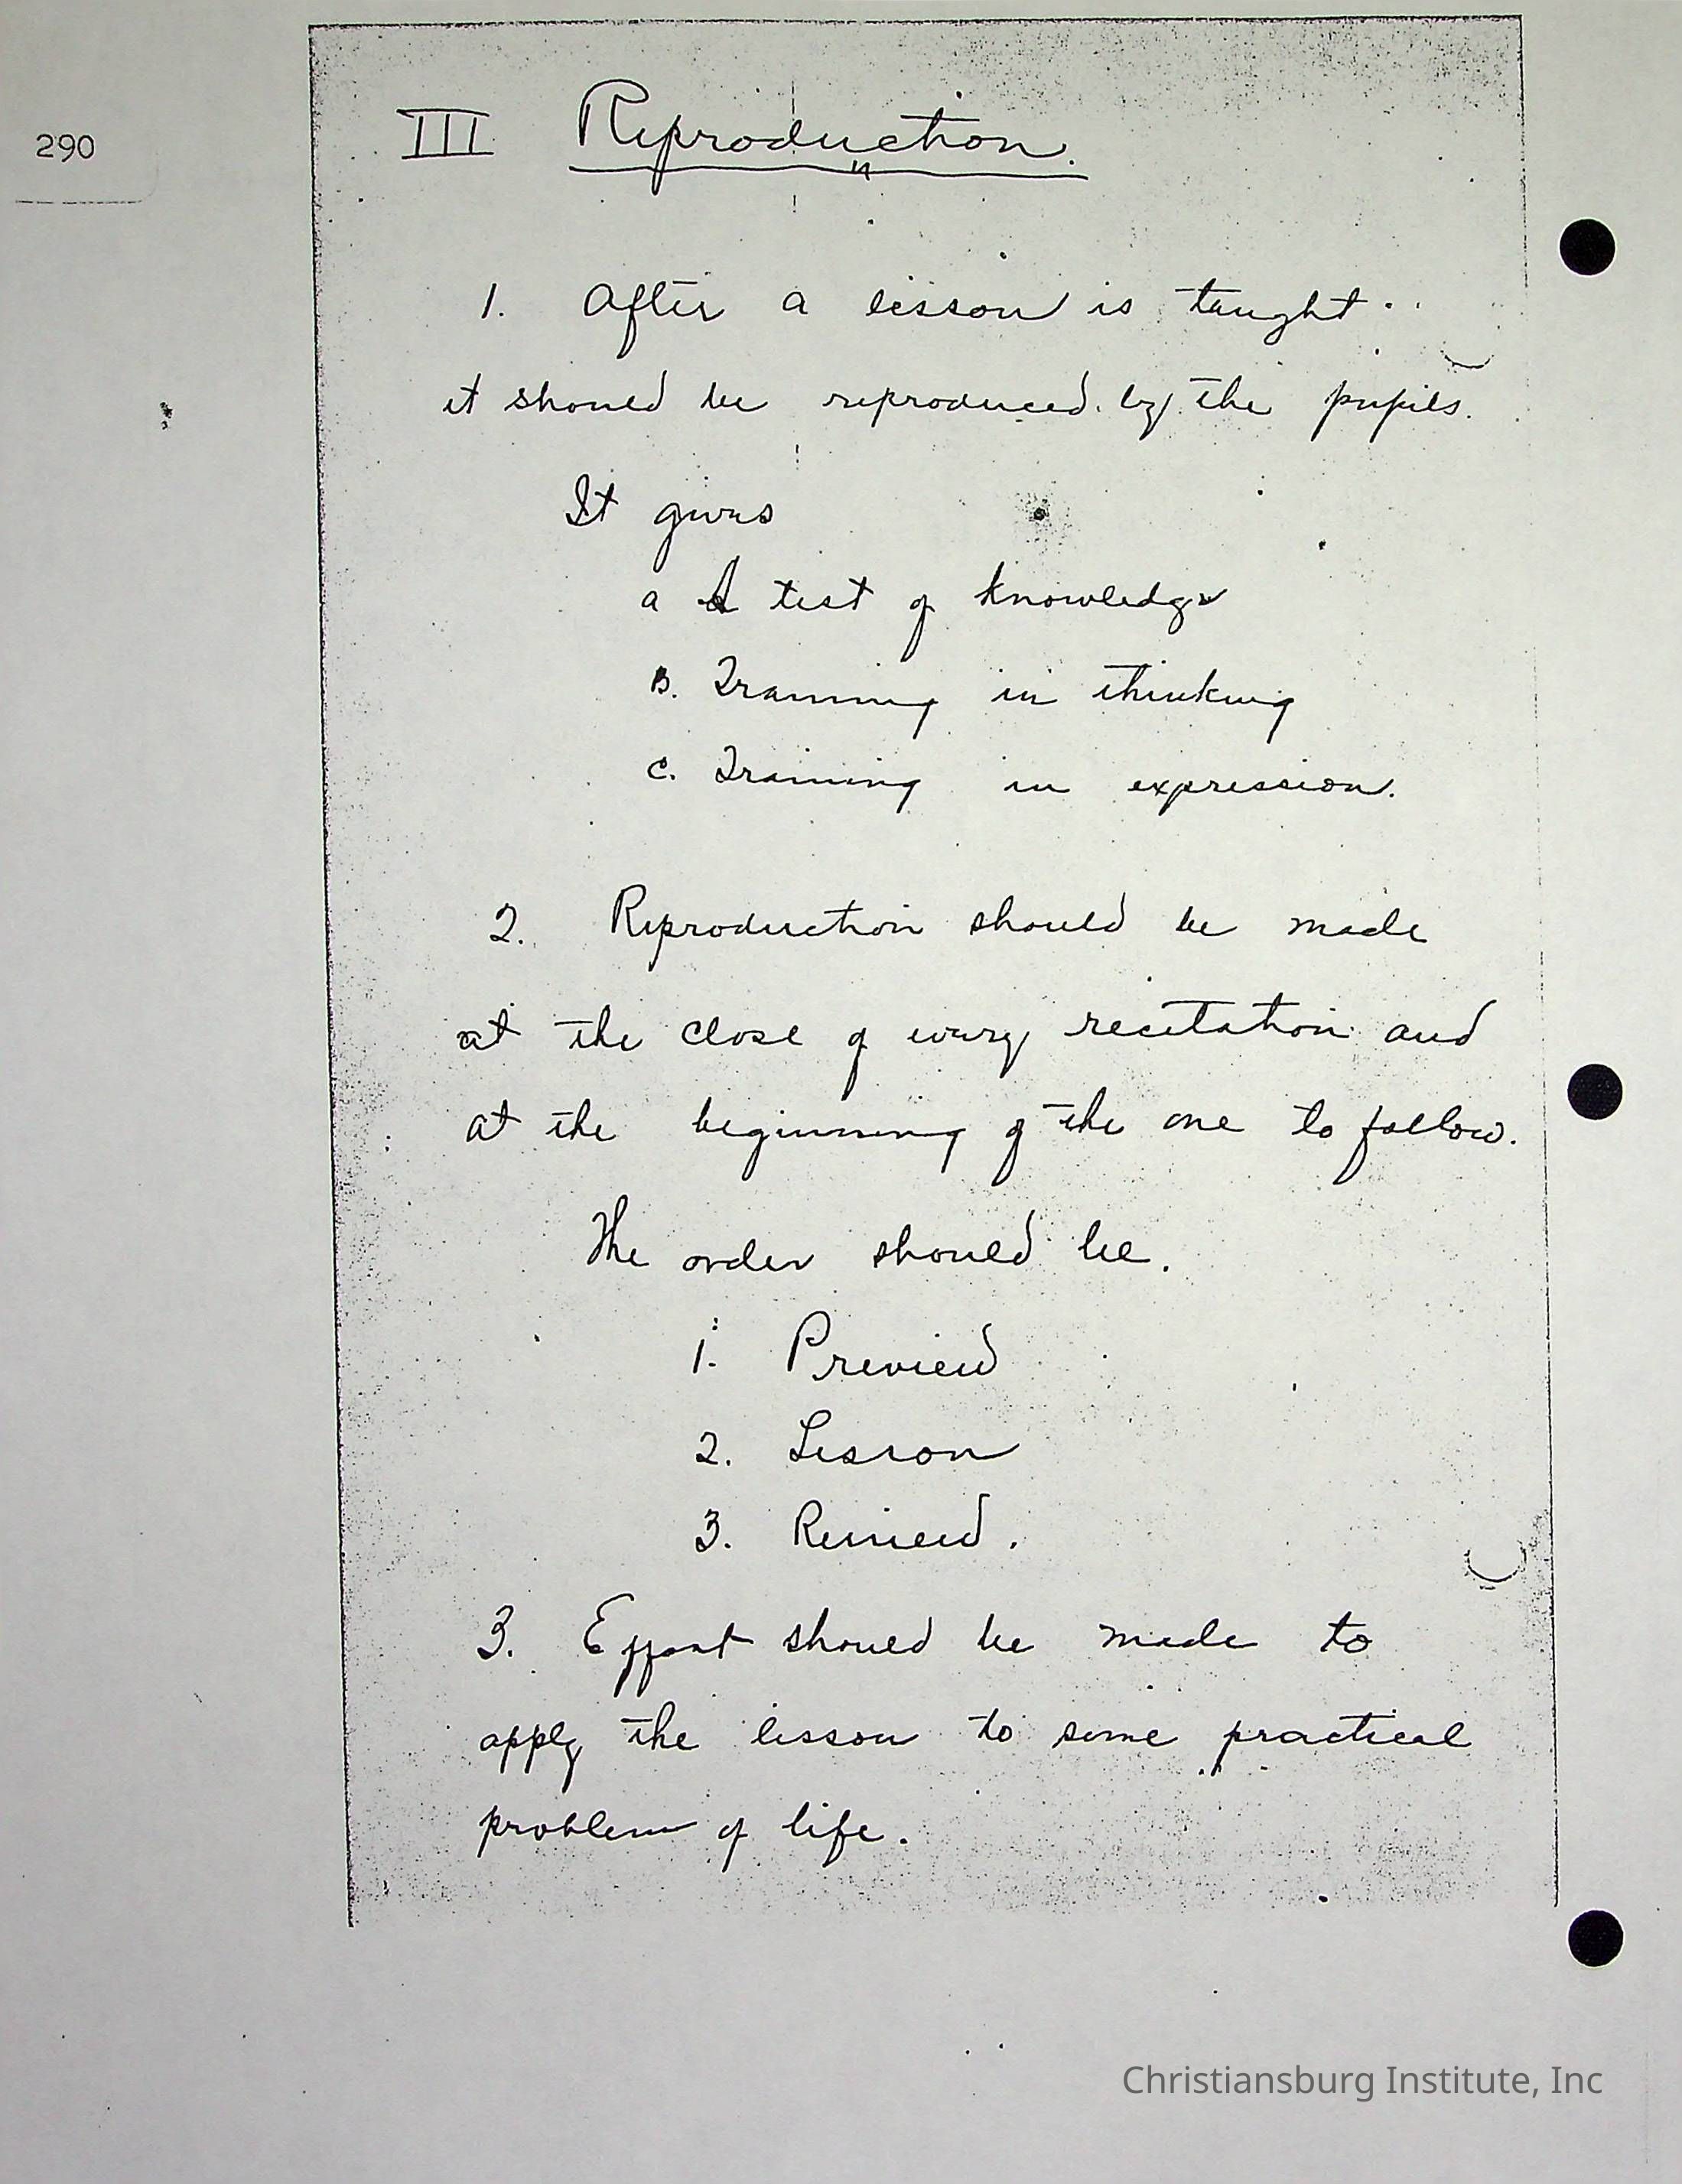 290
III Reproduction.
1. After a lesson is taught
it should be reproduced by the pupils.
It gives
a A test of knowledge
B. Training in thinking
C. Training in expression.
2. Reproduction should be made
at the close of every recitation and
at the beginning of the one to follow.
The order should be.
1. Preview
2. Lesson
3. Review.
3. Effort should be made to
apply the lesson to some practical
problem of life.
Christiansburg Institute, Inc